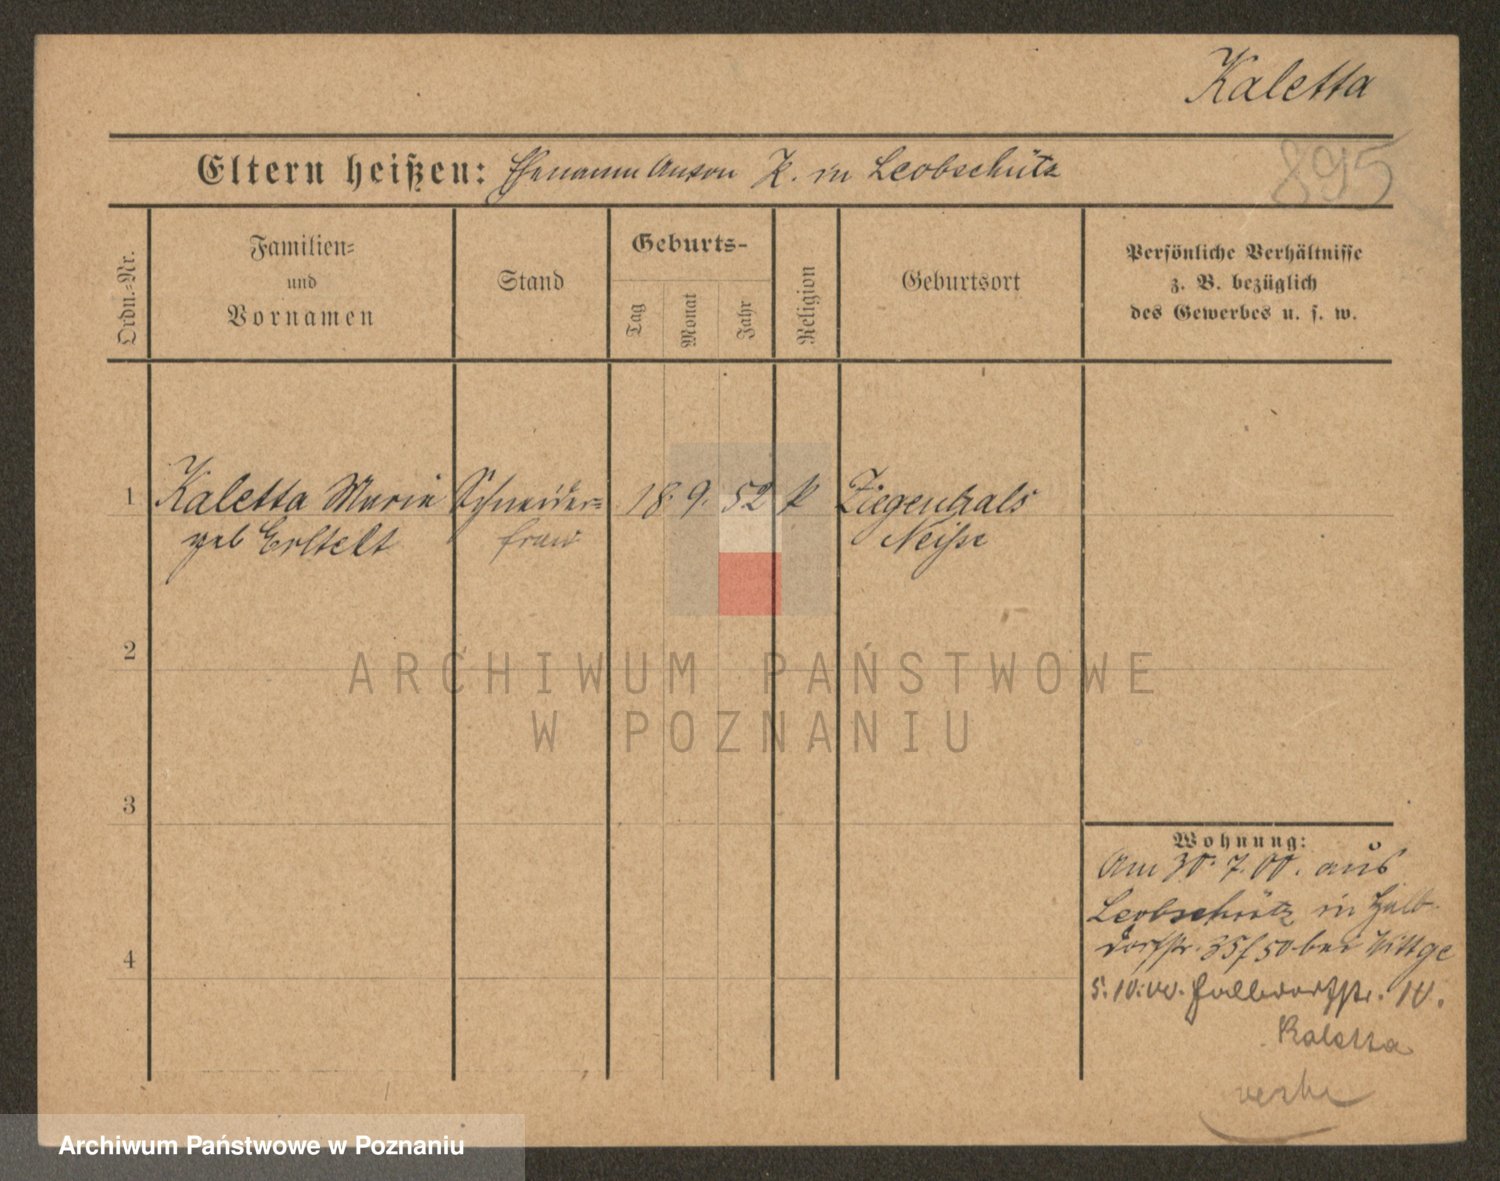 Kaletta
Eltern heißen: Ehemann Anton K. in Leobschütz
895
Ordn.-Nr.
Familien-
und
Vornamen
Stand
Geburts-
Tag
Monat
Jahr
Religion
Geburtsort
Persönliche Verhältnisse
z. B. bezüglich
des Gewerbes u. s. w.
1 Kaletta Marie Schneider- 18. 9. 52 k Ziegenhals
geb frau Neiße
2
ARCHIWUM PAŃSTWOWE
W POZNANIU
3
Wohnung:
Am 30. 7. 00. aus
Leobschütz in Halb-
dorfstr. 35/50 bei
4
5. 10. 00. Halbdorfstr. 10.
Kaletta
Archiwum Państwowe w Poznaniu